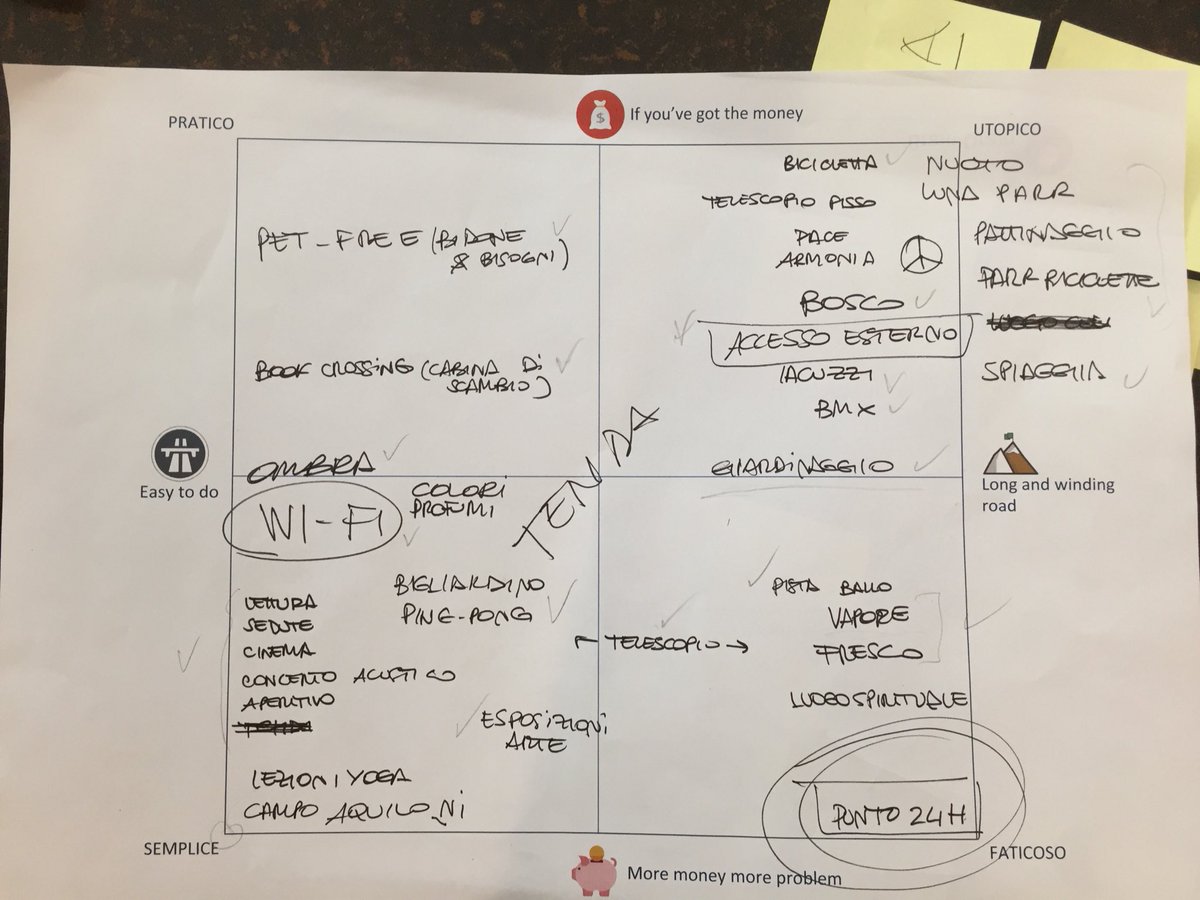 A
PRATICO
If you've got the money
UTOPICO
BICICLETTA
NUOTO
TELESCOPIO FISSO
LUNA PARK
PACE
ARMONIA
PATTINAGGIO
PET-FREE (BIDONE
X BISOGNI)
PARK BICICLETTE
BOSCO
ACCESSO ESTERNO
BOOK CROSSING (CABINA Di
SCAMBIO)
IACUZZI
SPIAGGIA
BMX
TENDA
GIARDiNAGGIO
OMBRA
Easy to do
Long and winding
road
COLORi
PROFUMI
WI-FI
BIGLIARDINO
PING-PONG
PISTA BALLO
VAPORE
FRESCO
← TELESCOPIO →
LETTURA
SEDUTE
CINEMA
CONCERTO ACUSTICO
APERITIVO
ESPOSiZIONi
ARTE
LUOGO SPIRITUALE
LEZIONI YOGA
CAMPO AQUILONi
PUNTO 24H
SEMPLICE
FATICOSO
More money more problem